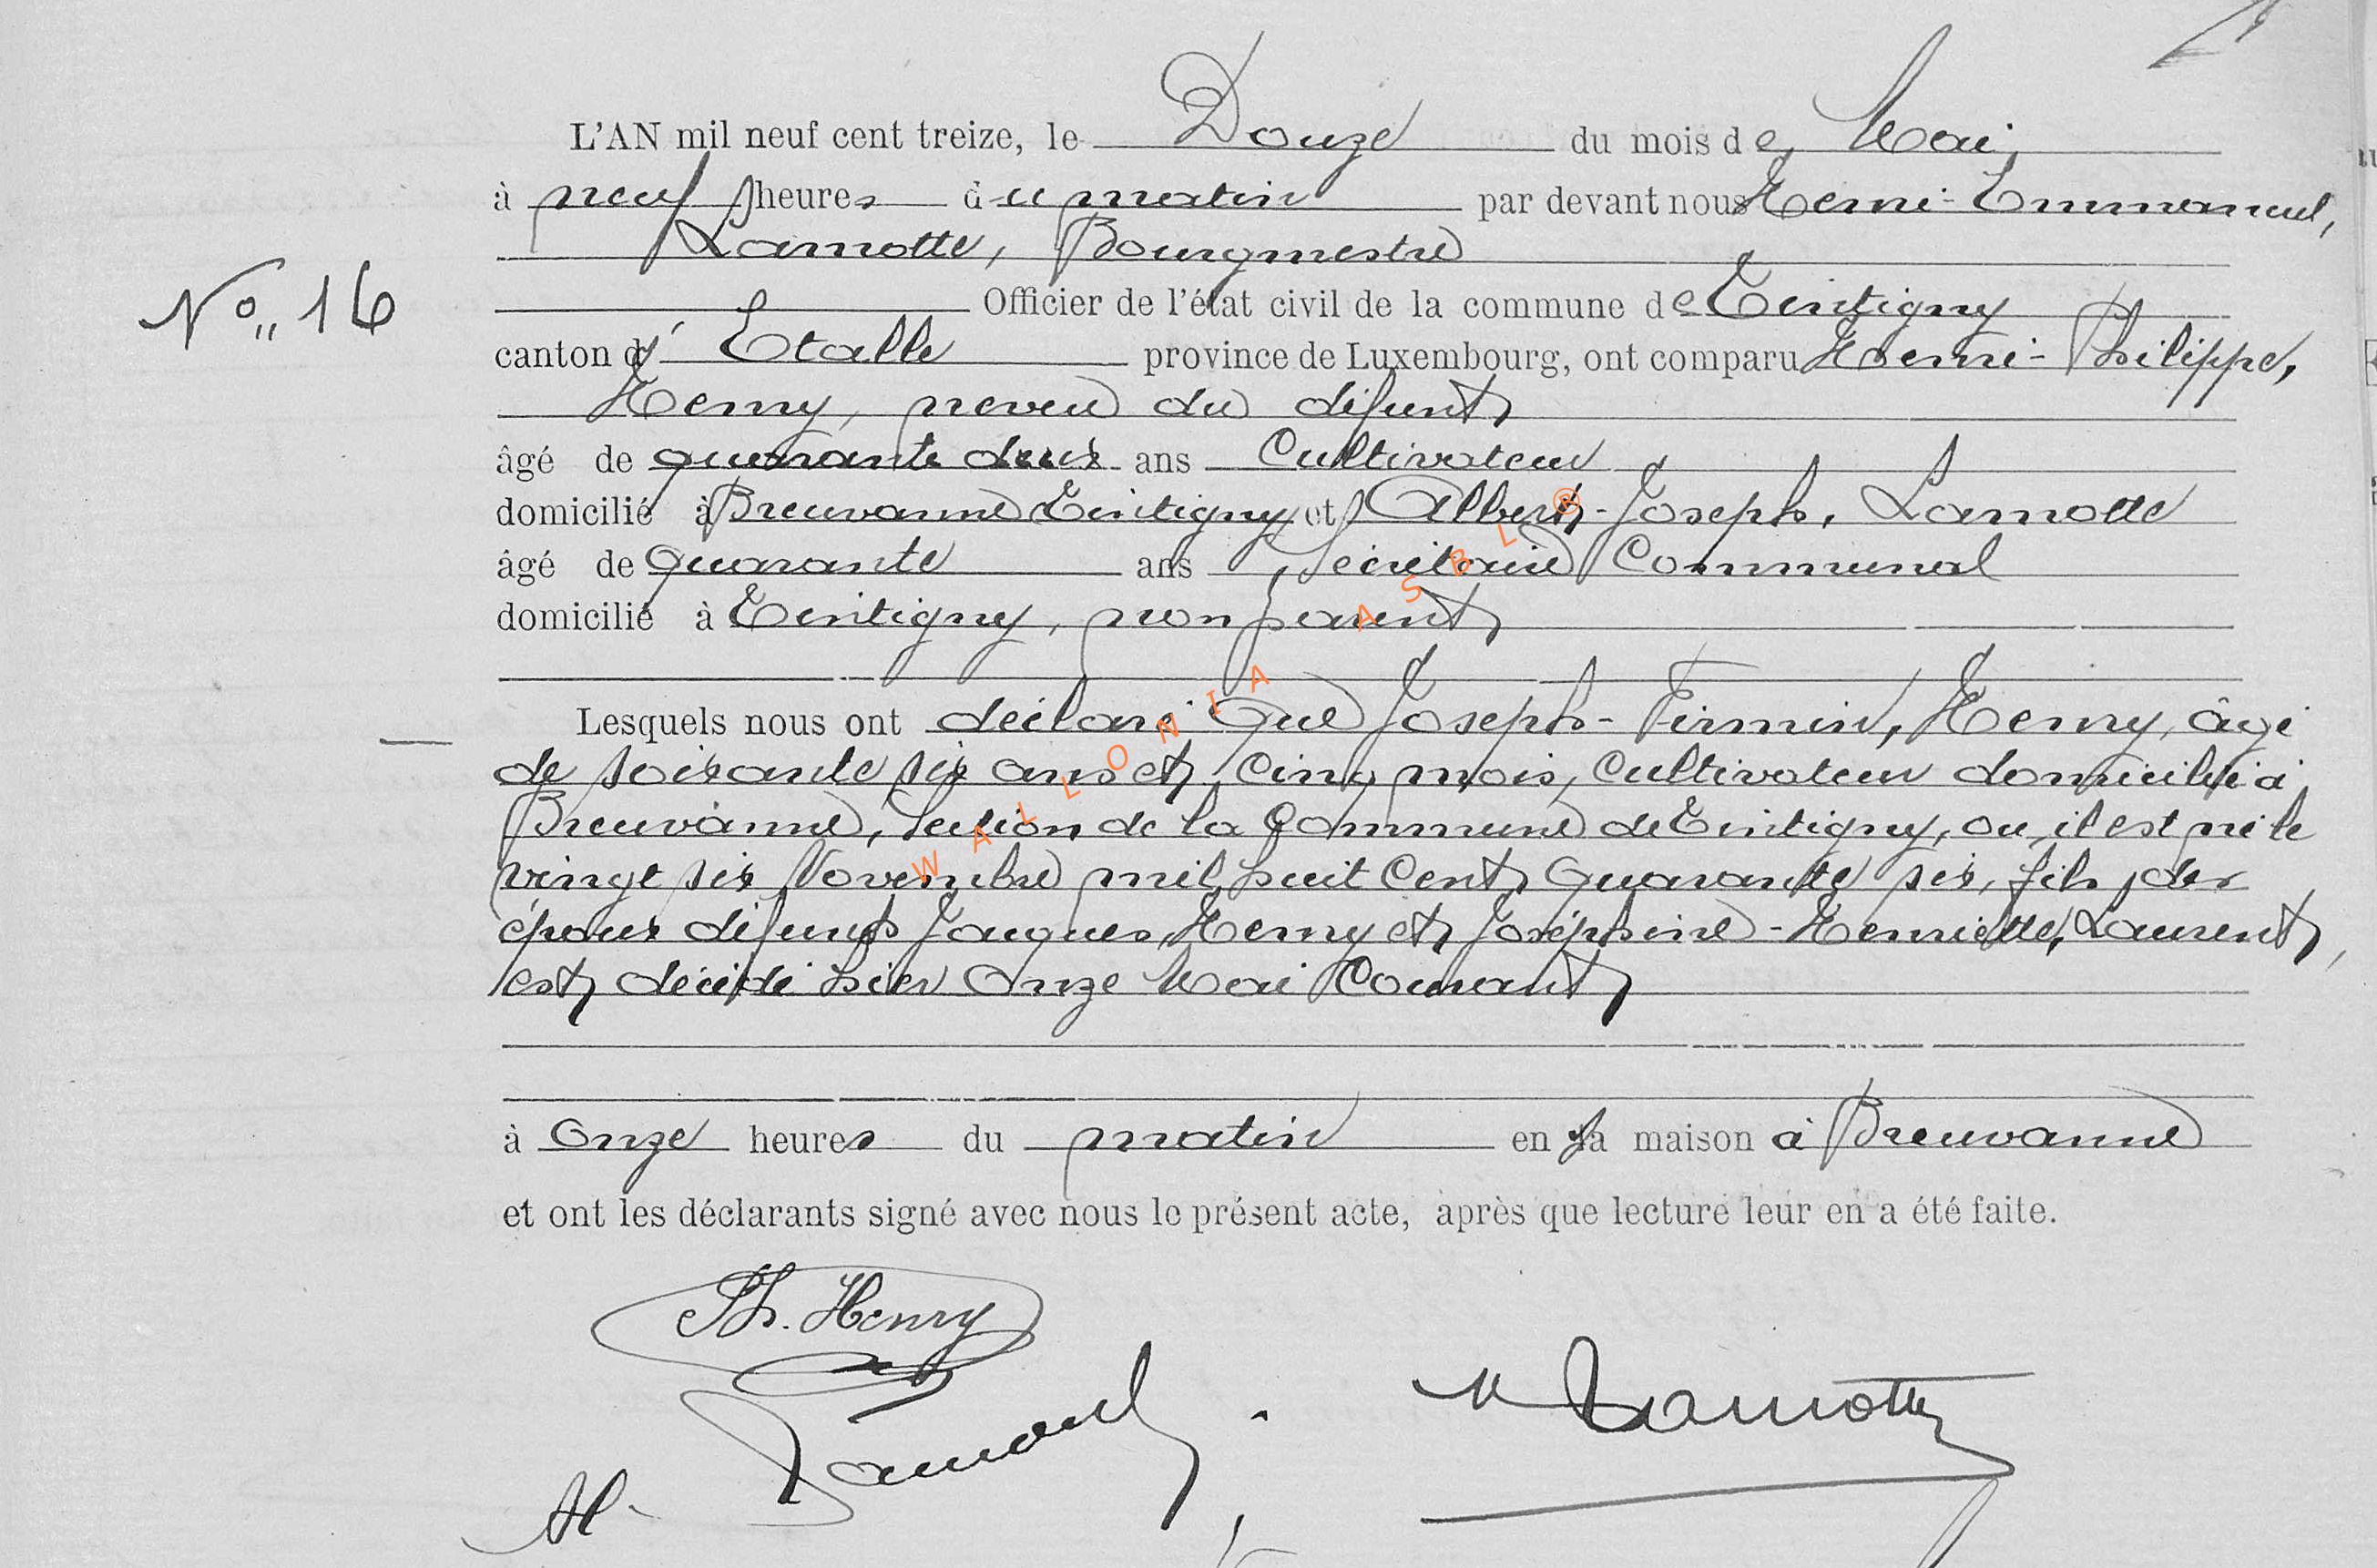 L'AN mil neuf cent treize, le Douze du mois de Mai,
à neuf heures du matin par devant nous Henri-Emmanuel,
Lamotte, Bourgmestre
No 16
Officier de l'état civil de la commune de Tintigny
canton d'Etalle province de Luxembourg, ont comparu Henri-Philippe,
Henry, neveu du défunt
âgé de quarante deux ans Cultivateur
domicilié à Breuvanne Tintigny et Albert-Joseph, Lamotte
âgé de quarante ans Secrétaire Communal
domicilié à Tintigny, non parent
Lesquels nous ont déclaré que Joseph-Firmin, Henry, âgé
de soixante six ans et cinq mois, cultivateur domicilié à
Breuvanne, section de la Commune de Tintigny, ou il est né le
vingt six Novembre mil huit cent quarante six, fils des
époux défunts Jacques, Henry et Joséphine-Henriette, Laurent,
est décédé hier onze Mai courant
à onze heures du matin en sa maison à Breuvanne
et ont les déclarants signé avec nous le présent acte, après que lecture leur en a été faite.
Ph. Henry
Al. Lamotte
H Lamotte
WALLONIA ASBL ®